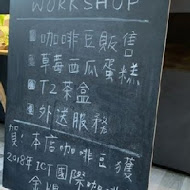 WORKSHOP
咖啡豆販售
草莓西瓜蛋糕
T2茶盒
外送服務
賀 本店咖啡豆 獲
2018年ICT國際咖啡
金獎